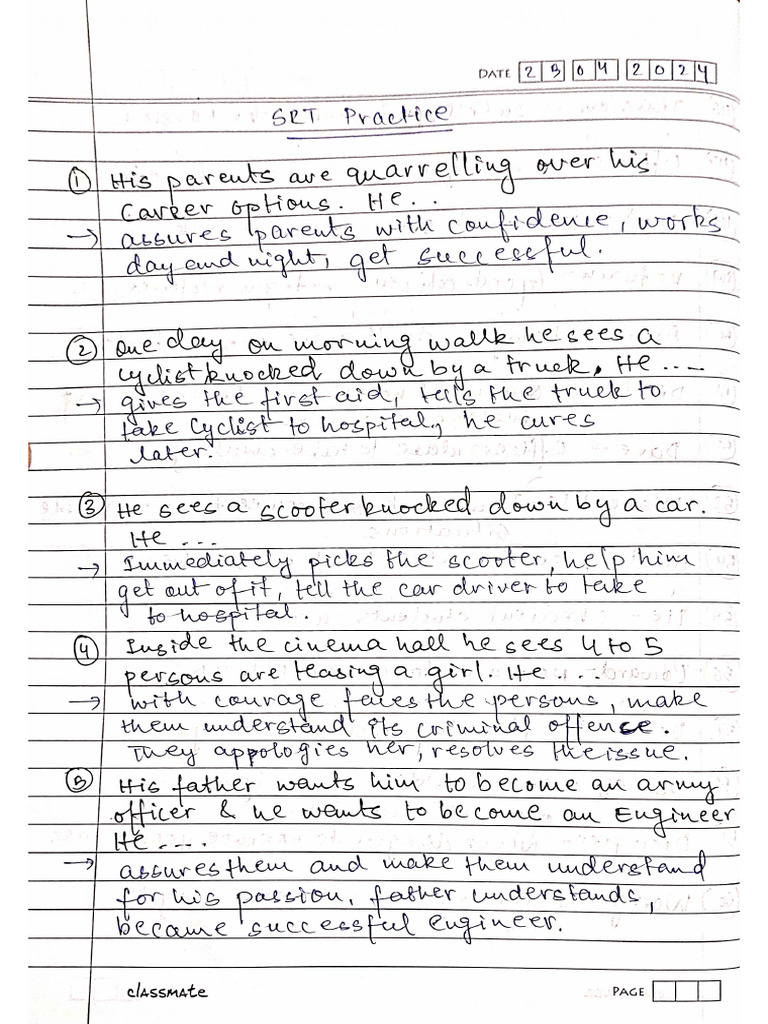 DATE 23 04 2024
SRT Practice
① His parents are quarrelling over his
career options. He . .
→ assures parents with confidence, works
day and night, get successful.
② One day on morning wallk he sees a
cyclist knocked down by a truck. He ....
→ gives the first aid, tells the truck to
take cyclist to hospital, he cures
later.
③ He sees a scooter knocked down by a car.
He ...
→ Immediately picks the scooter, help him
get out of it, tell the car driver to take
to hospital.
④ Inside the cinema hall he sees 4 to 5
persons are teasing a girl. He ....
→ with courage faces the persons, make
them understand its criminal offence.
They appologies her, resolves the issue.
⑤ His father wants him to become an army
officer & he wants to become an Engineer
He ....
→ assures them and make them understand
for his passion, father understands,
became successful engineer.
classmate PAGE